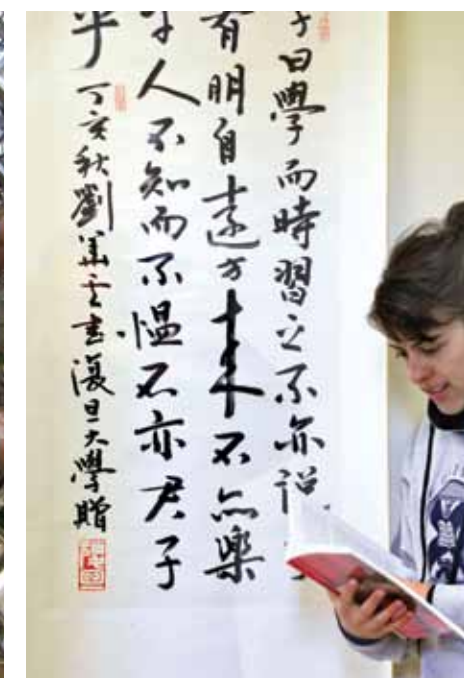 子曰學而時習之不亦說
有朋自遠方来不亦樂
乎人不知而不慍不亦君子
乎
丁亥秋劉書復旦大學贈